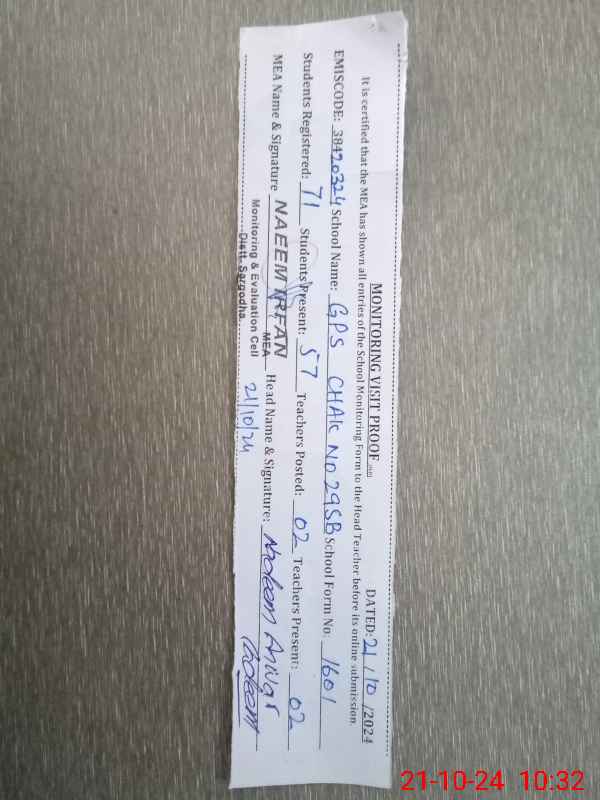 MONITORING VISIT PROOF
DATED: 21/10/2024
It is certified that the MEA has shown all entries of the School Monitoring Form to the Head Teacher before its online submission.
EMISCODE: 38420324 School Name: GPS CHAK NO 29SB School Form No. 1601
Students Registered: 71 Students Present: 57 Teachers Posted: 02 Teachers Present: 02
MEA Name & Signature NAEEM IRFAN Head Name & Signature: Nadeem Anwar Nadeem
MEA
Monitoring & Evaluation Cell
Distt. Sargodha.
21/10/24
21-10-24 10:32